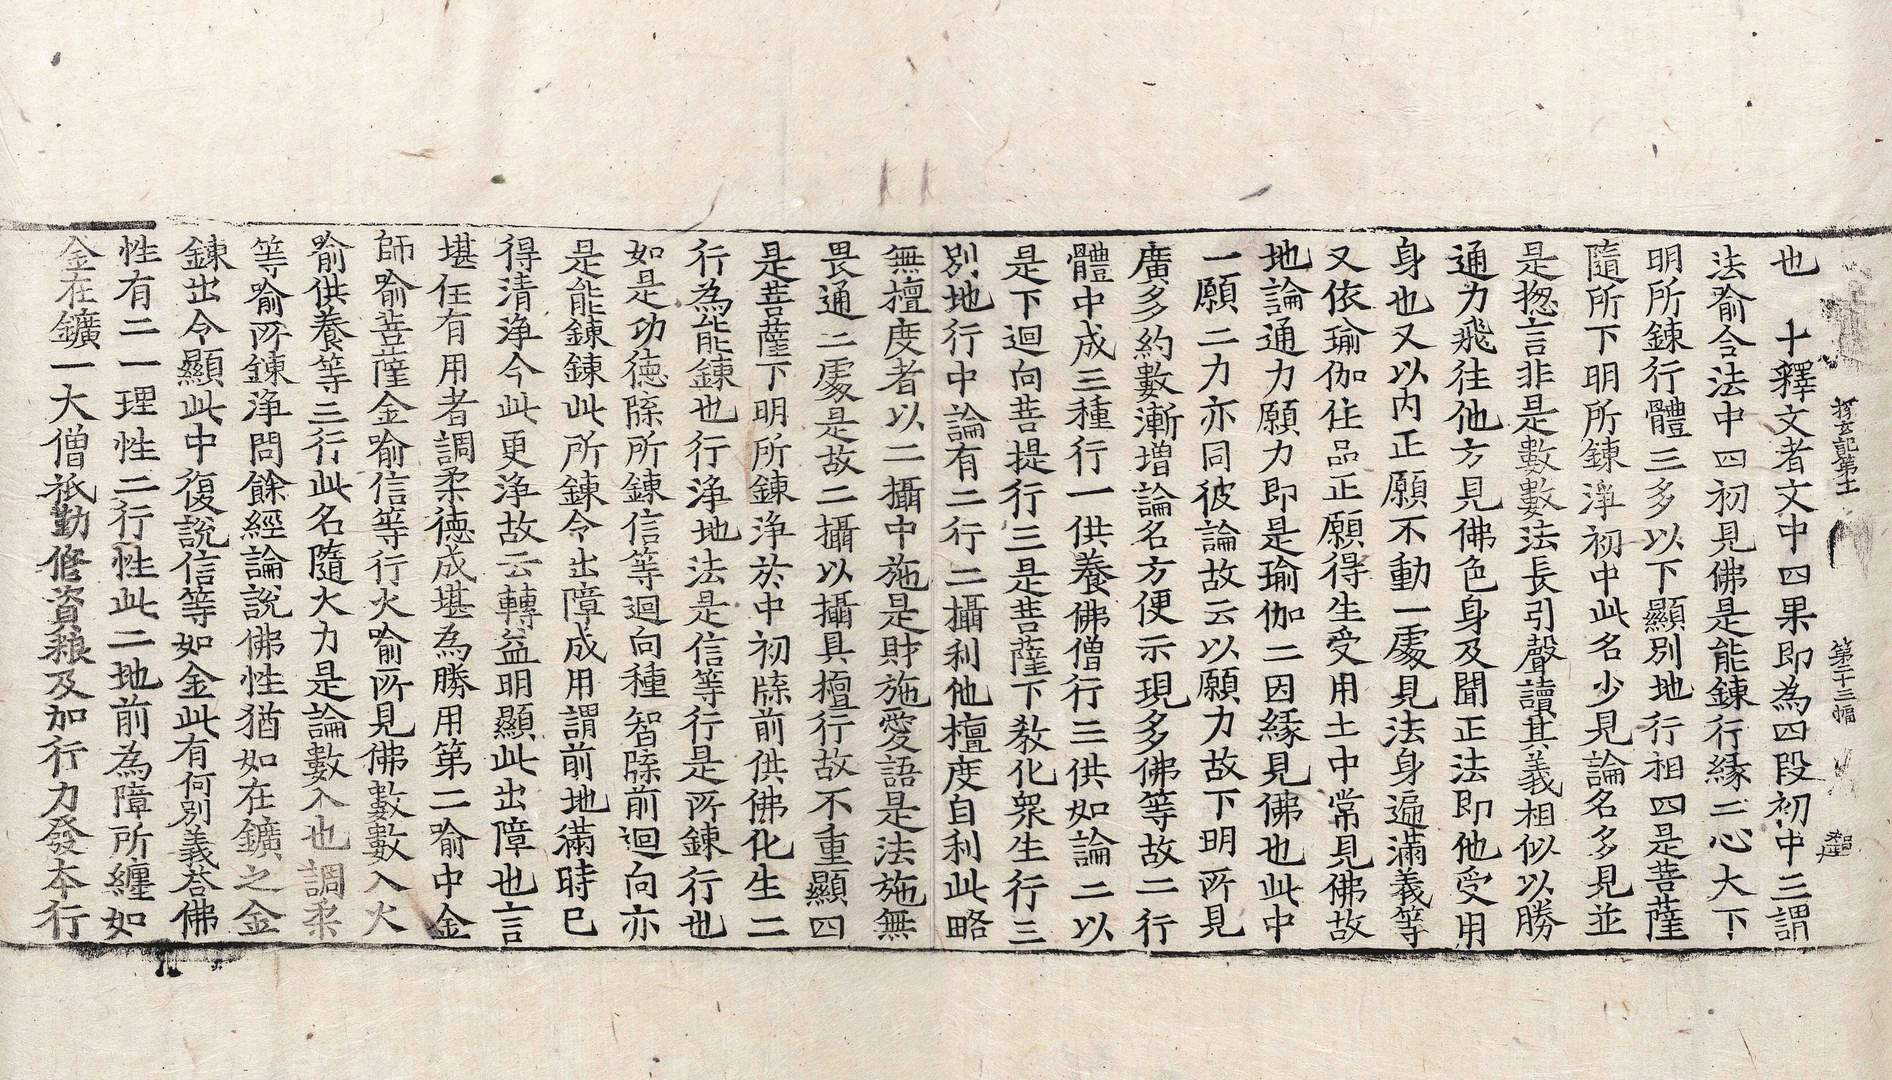 探玄記第十　第二十三幅
也　十釋文者文中四果即為四段初中三謂
法喻合法中四初見佛是能鍊行緣二心大下
明所鍊行體三多以下顯別地行相四是菩薩
隨所下明所鍊淨初中此名少見論名多見並
是揔言非是數數法長引聲讀其義相似以勝
通力飛往他方見佛色身及聞正法即他受用
身也又以內正願不動一處見法身遍滿義等
又依瑜伽住品正願得生受用土中常見佛故
地論通力願力即是瑜伽二因緣見佛也此中
一願二力亦同彼論故云以願力故下明所見
廣多約數漸增論名方便示現多佛等故二行
體中成三種行一供養佛僧行三供如論二以
是下迴向菩提行三是菩薩下教化眾生行三
別地行中論有二行二攝利他檀度自利此略
無檀度者以二攝中施是財施愛語是法施無
畏通二處是故二攝以攝具檀行故不重顯四
是菩薩下明所鍊淨於中初牒前供佛化生二
行為能鍊也行淨地法是信等行是所鍊行也
如是功德牒所鍊信等迴向種智牒前迴向亦
是能鍊鍊此所鍊令出障成用謂前地滿時已
得清淨今此更淨故云轉益明顯此出障也言
堪任有用者調柔德成堪為勝用第二喻中金
師喻菩薩金喻信等行火喻所見佛數數入火
喻供養等三行此名隨火力是論數入也調柔
等喻所鍊淨問餘經論說佛性猶如在鑛之金
鍊出今顯此中復說信等如金此有何別義荅佛
性有二一理性二行性此二地前為障所纏如
金在鑛一大僧祇勤修資粮及加行力發本行